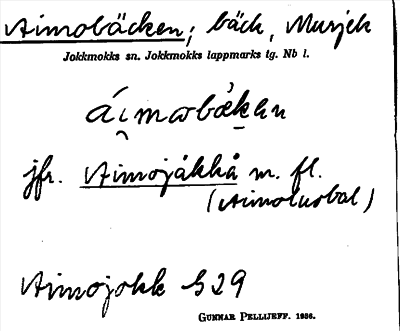 Aimobäcken; bäck, Murjek
Jokkmokks sn. Jokkmokks lappmarks tg. Nb l.
áimobækən
jfr. Aimojåkkå m. fl.
(Aimoluobal)
Aimojokk S29
GUNNAR PELLIJEFF. 1956.